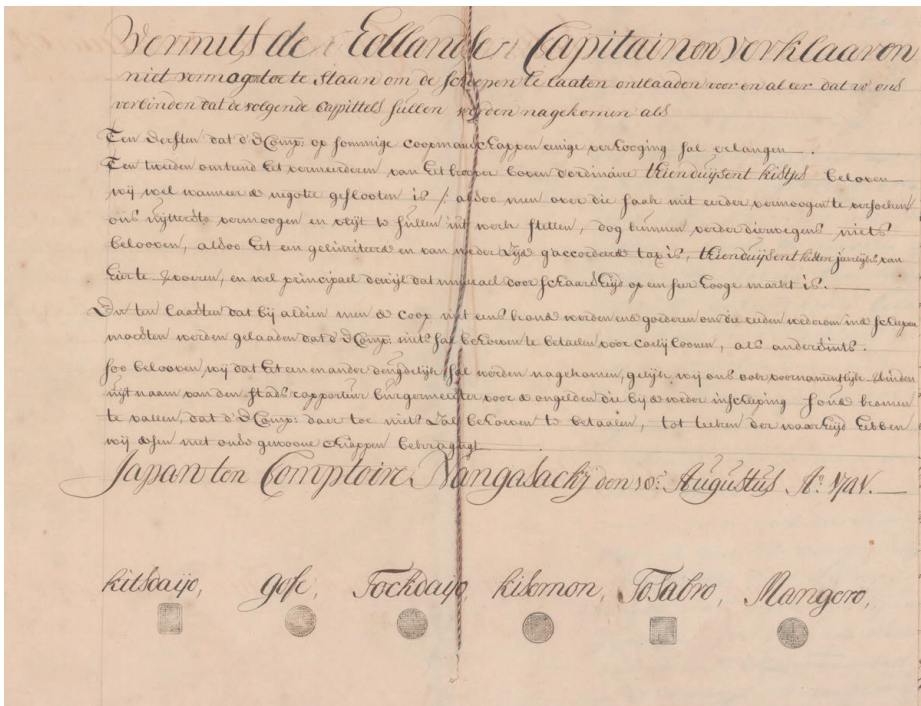 Vermits de Hollandse Capitainen verklaaren
niet vermogen toe te staan om de scheepen te laaten ontlaaden voor en al eer dat w'ons
verbinden dat de volgende Cappittels sullen werden nagekomen als
Ten Eersten dat d'E Comp: op sommige coopmanschappen eenige verhooging sal erlangen.
Ten tweeden omtrend het vermeerderen van het kooper boven d'ordinaire thienduijsent kistjes beloven
wij wel wanneer de negotie geslooten is /: aldoo men over die saak niet eerder vermoogen te versoeken
ons uijtterste vermoogen en vlijt te sullen int werk stellen, dog kunnen verder dierwegens niets
belooven, aldoo het een gelimiteerde en van weder zijds g'accordeerde tax is, thienduijsent kisten jaarlijks van
hier te voeren, en wel principaal dewijl dat mineraal door schaarsheijd op een seer hooge markt is.
En ten laasten dat bij aldien men de coop niet eens konde werden en de goederen om die reden wederom in de scheepen
mochten werden gelaaden dat d'E Comp: niets sal behoeven te betaelen voor coelij loonen, als andersints.
soo belooven wij dat het een en ander deugdelijk sal werden nagekomen, gelijk wij ons ook voornamentlijk
uijt naam van den stads rapporteur burgermeester voor de ongelden die bij de weder inscheping soude komen
te vallen, dat d'E Comp: daer toe niets zal behoeven te betaalen, tot teeken der waarheijd hebben
wij desen met onse gewoone chiappen bekragtigt
Japan ten Comptoire Nangasackij den 10:e Augustus A:o
kitsdaijo, gofe, Fockdayo, kisemon, ToSabro, Mangero,